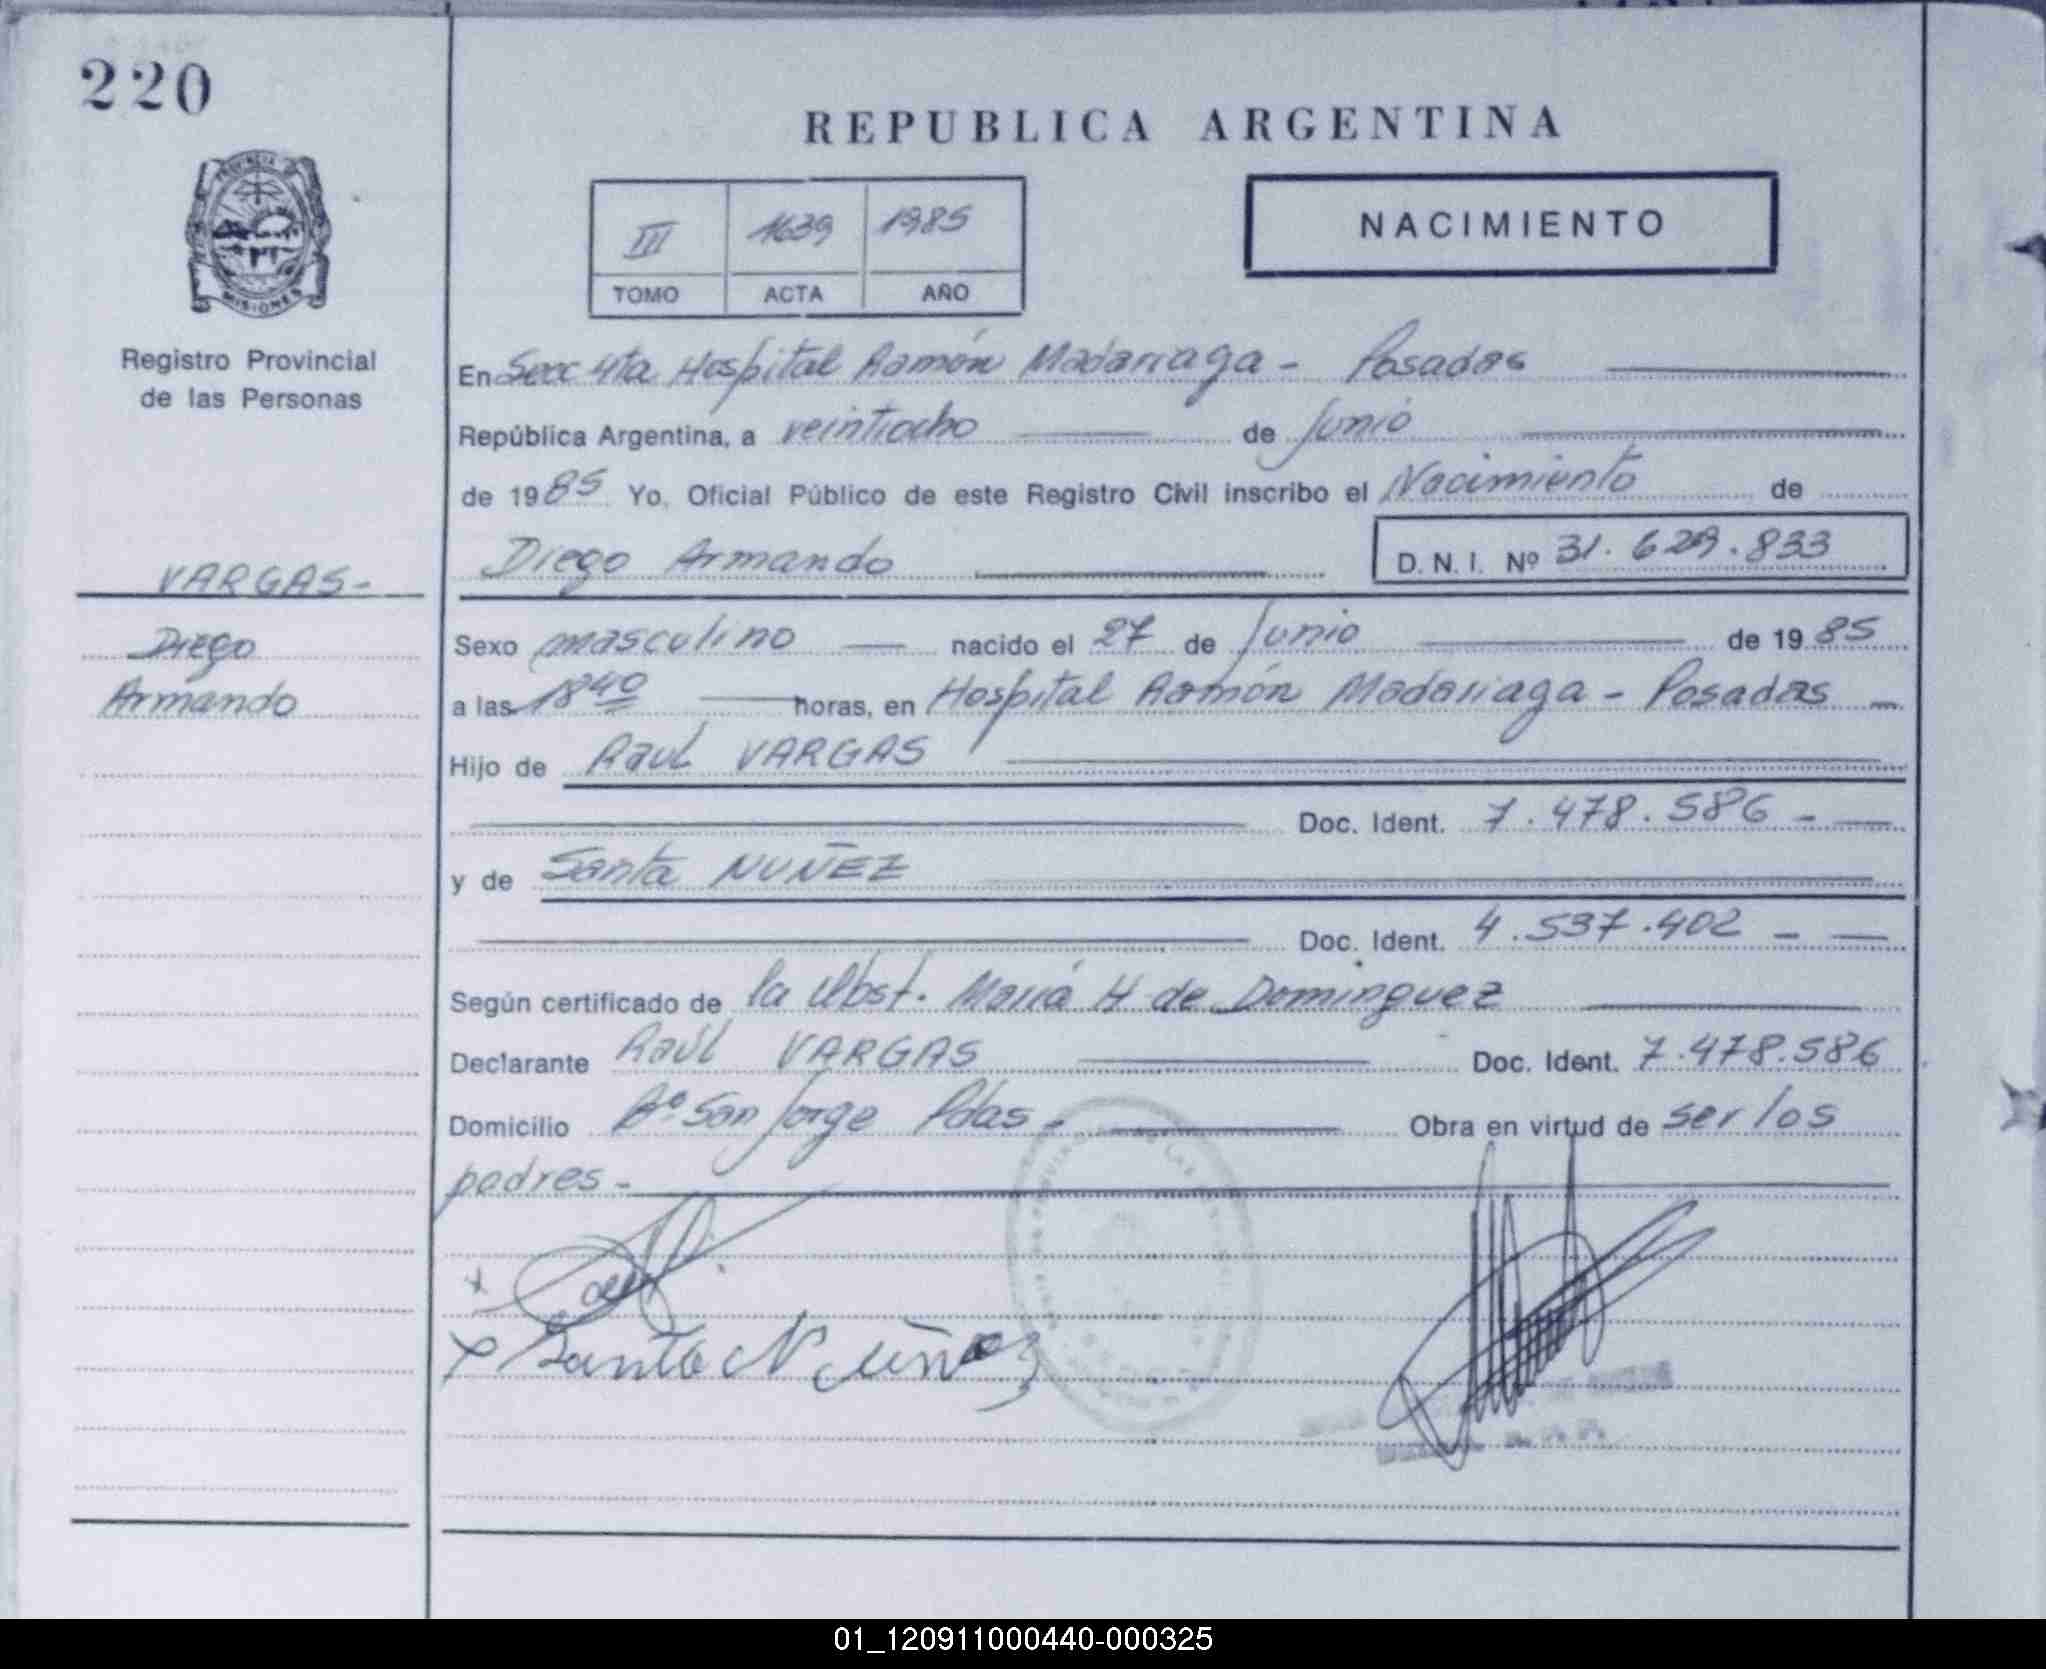 220
REPUBLICA ARGENTINA
PROVINCIA
MISIONES
Registro Provincial
de las Personas
III 1639 1985
TOMO ACTA AÑO
NACIMIENTO
En Secc 4ta Hospital Ramón Madariaga - Posadas
República Argentina, a veintiocho de Junio
de 1985 Yo, Oficial Público de este Registro Civil inscribo el Nacimiento de
VARGAS-
Diego Armando
D.N.I. Nº 31.629.833
Diego
Armando
Sexo masculino nacido el 27 de Junio de 1985
a las 18 40 horas, en Hospital Ramón Madariaga - Posadas
Hijo de Raul VARGAS
Doc. Ident. 7.478.586
y de Santa NUÑEZ
Doc. Ident. 4.537.402
Según certificado de la Obst. María H de Dominguez
Declarante Raúl VARGAS Doc. Ident. 7.478.586
Domicilio Bº San Jorge Pdas - Obra en virtud de ser los
padres -
x
x Santa Nuñez
01_120911000440-000325